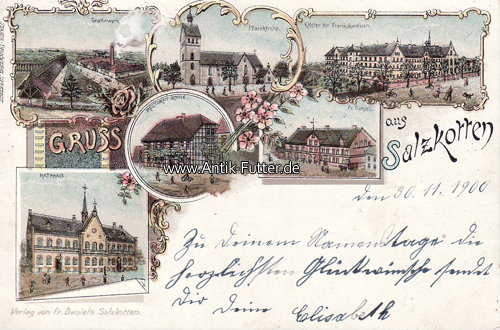 Gradierwerk
Pfarrkirche.
Kloster der Franziskanerinnen
GRUSS
aus
Salzkotten
www.Antik-Futter.de
Fr. Daniels
RATHHAUS.
den 30. 11. 1900
Zu Deinem Namenstage die
herzlichsten Glückwünsche sendet
Dir Deine Elisabeth
Verlag von Fr. Daniels Salzkotten.